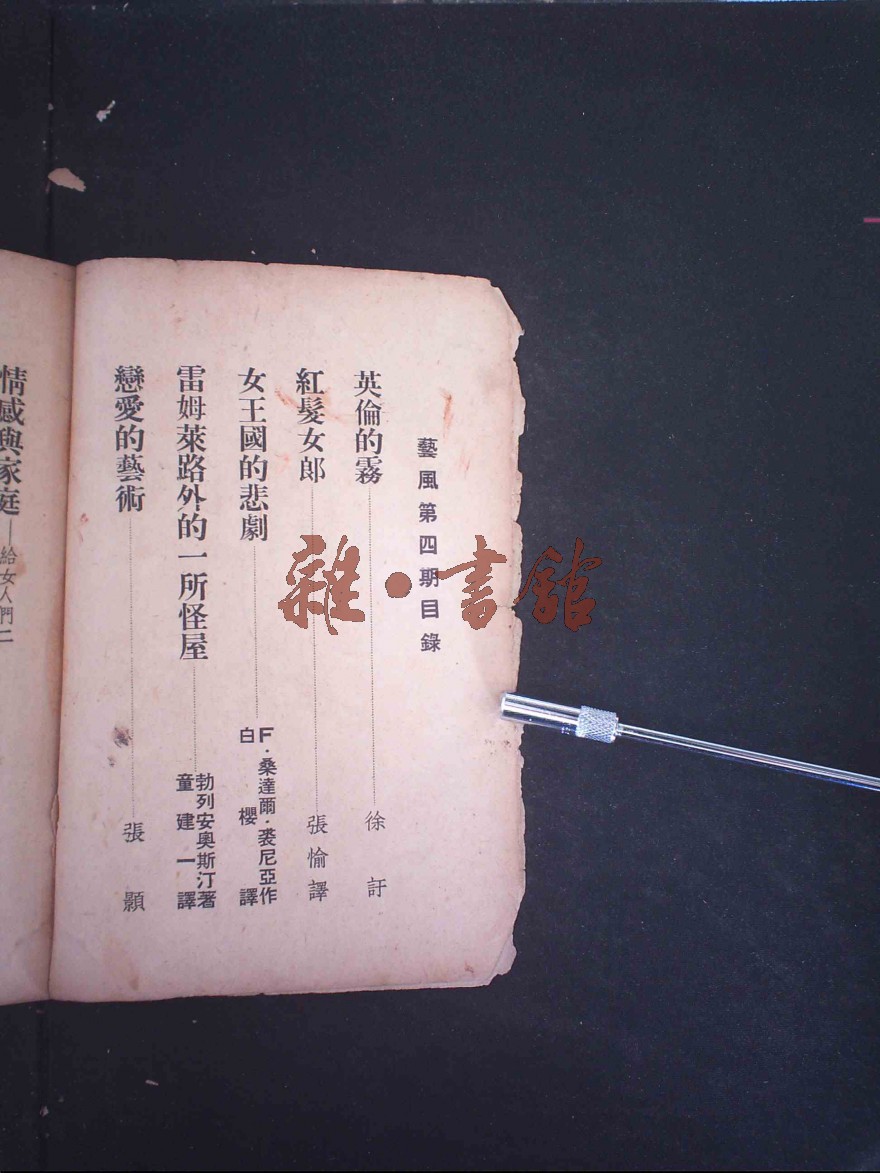 藝風第四期目錄
英倫的霧 徐訏
紅髮女郎 張愉譯
女王國的悲劇 F·桑達爾·裘尼亞作
白櫻譯
雷姆萊路外的一所怪屋 勃列安奧斯汀著
童建一譯
戀愛的藝術 張顥
情感與家庭—給女人們二
雜·書館